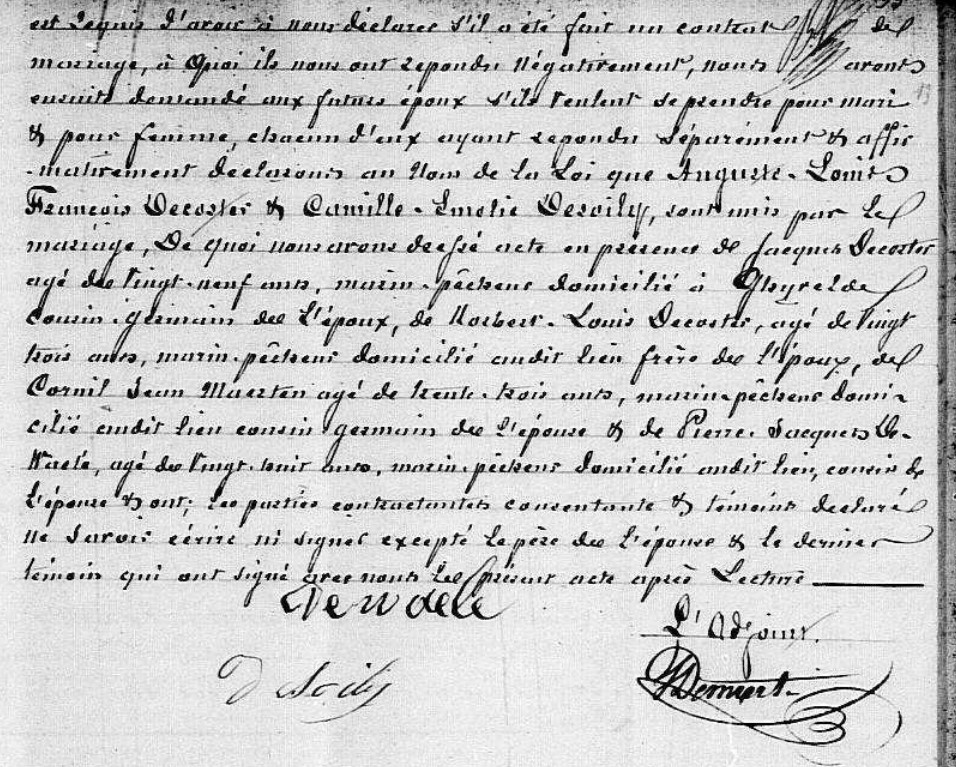 est requis d'avoir à nous déclarer s'il a été fait un contrat de
mariage, à quoi ils nous ont repondu négativement, nous avons
ensuite demandé aux futurs époux s'ils veulent se prendre pour mari
& pour femme, chacun d'eux ayant repondu séparément & affir
-mativement declarons au Nom de la Loi que Auguste-Louis
François Decoster & Camille-Emelie Desoily, sont unis par le
mariage, De quoi nous avons dressé acte en présence de Jacques Decoster
agé de vingt-neuf ans, marin-pêcheur domicilié à Ghyvelde
cousin-germain de l'époux, de Norbert-Louis Decoster, agé de vingt
trois ans, marin-pêcheur domicilié audit lieu frère de l'époux, de
Cornil Jean Maerten agé de trente-trois ans, marin-pêcheur domi-
cilié audit lieu cousin germain de l'épouse & de Pierre-Jacques De-
Waele, agé de vingt-huit ans, marin-pêcheur domicilié audit lieu, cousin de
l'épouse & ont; les parties contractantes consentante & témoins declaré
ne savoir écrire ni signer excepté le père de l'épouse & le dernier
témoin qui ont signé avec nous le présent acte après Lecture
Dewaele
L'Adjoint.
Desoily